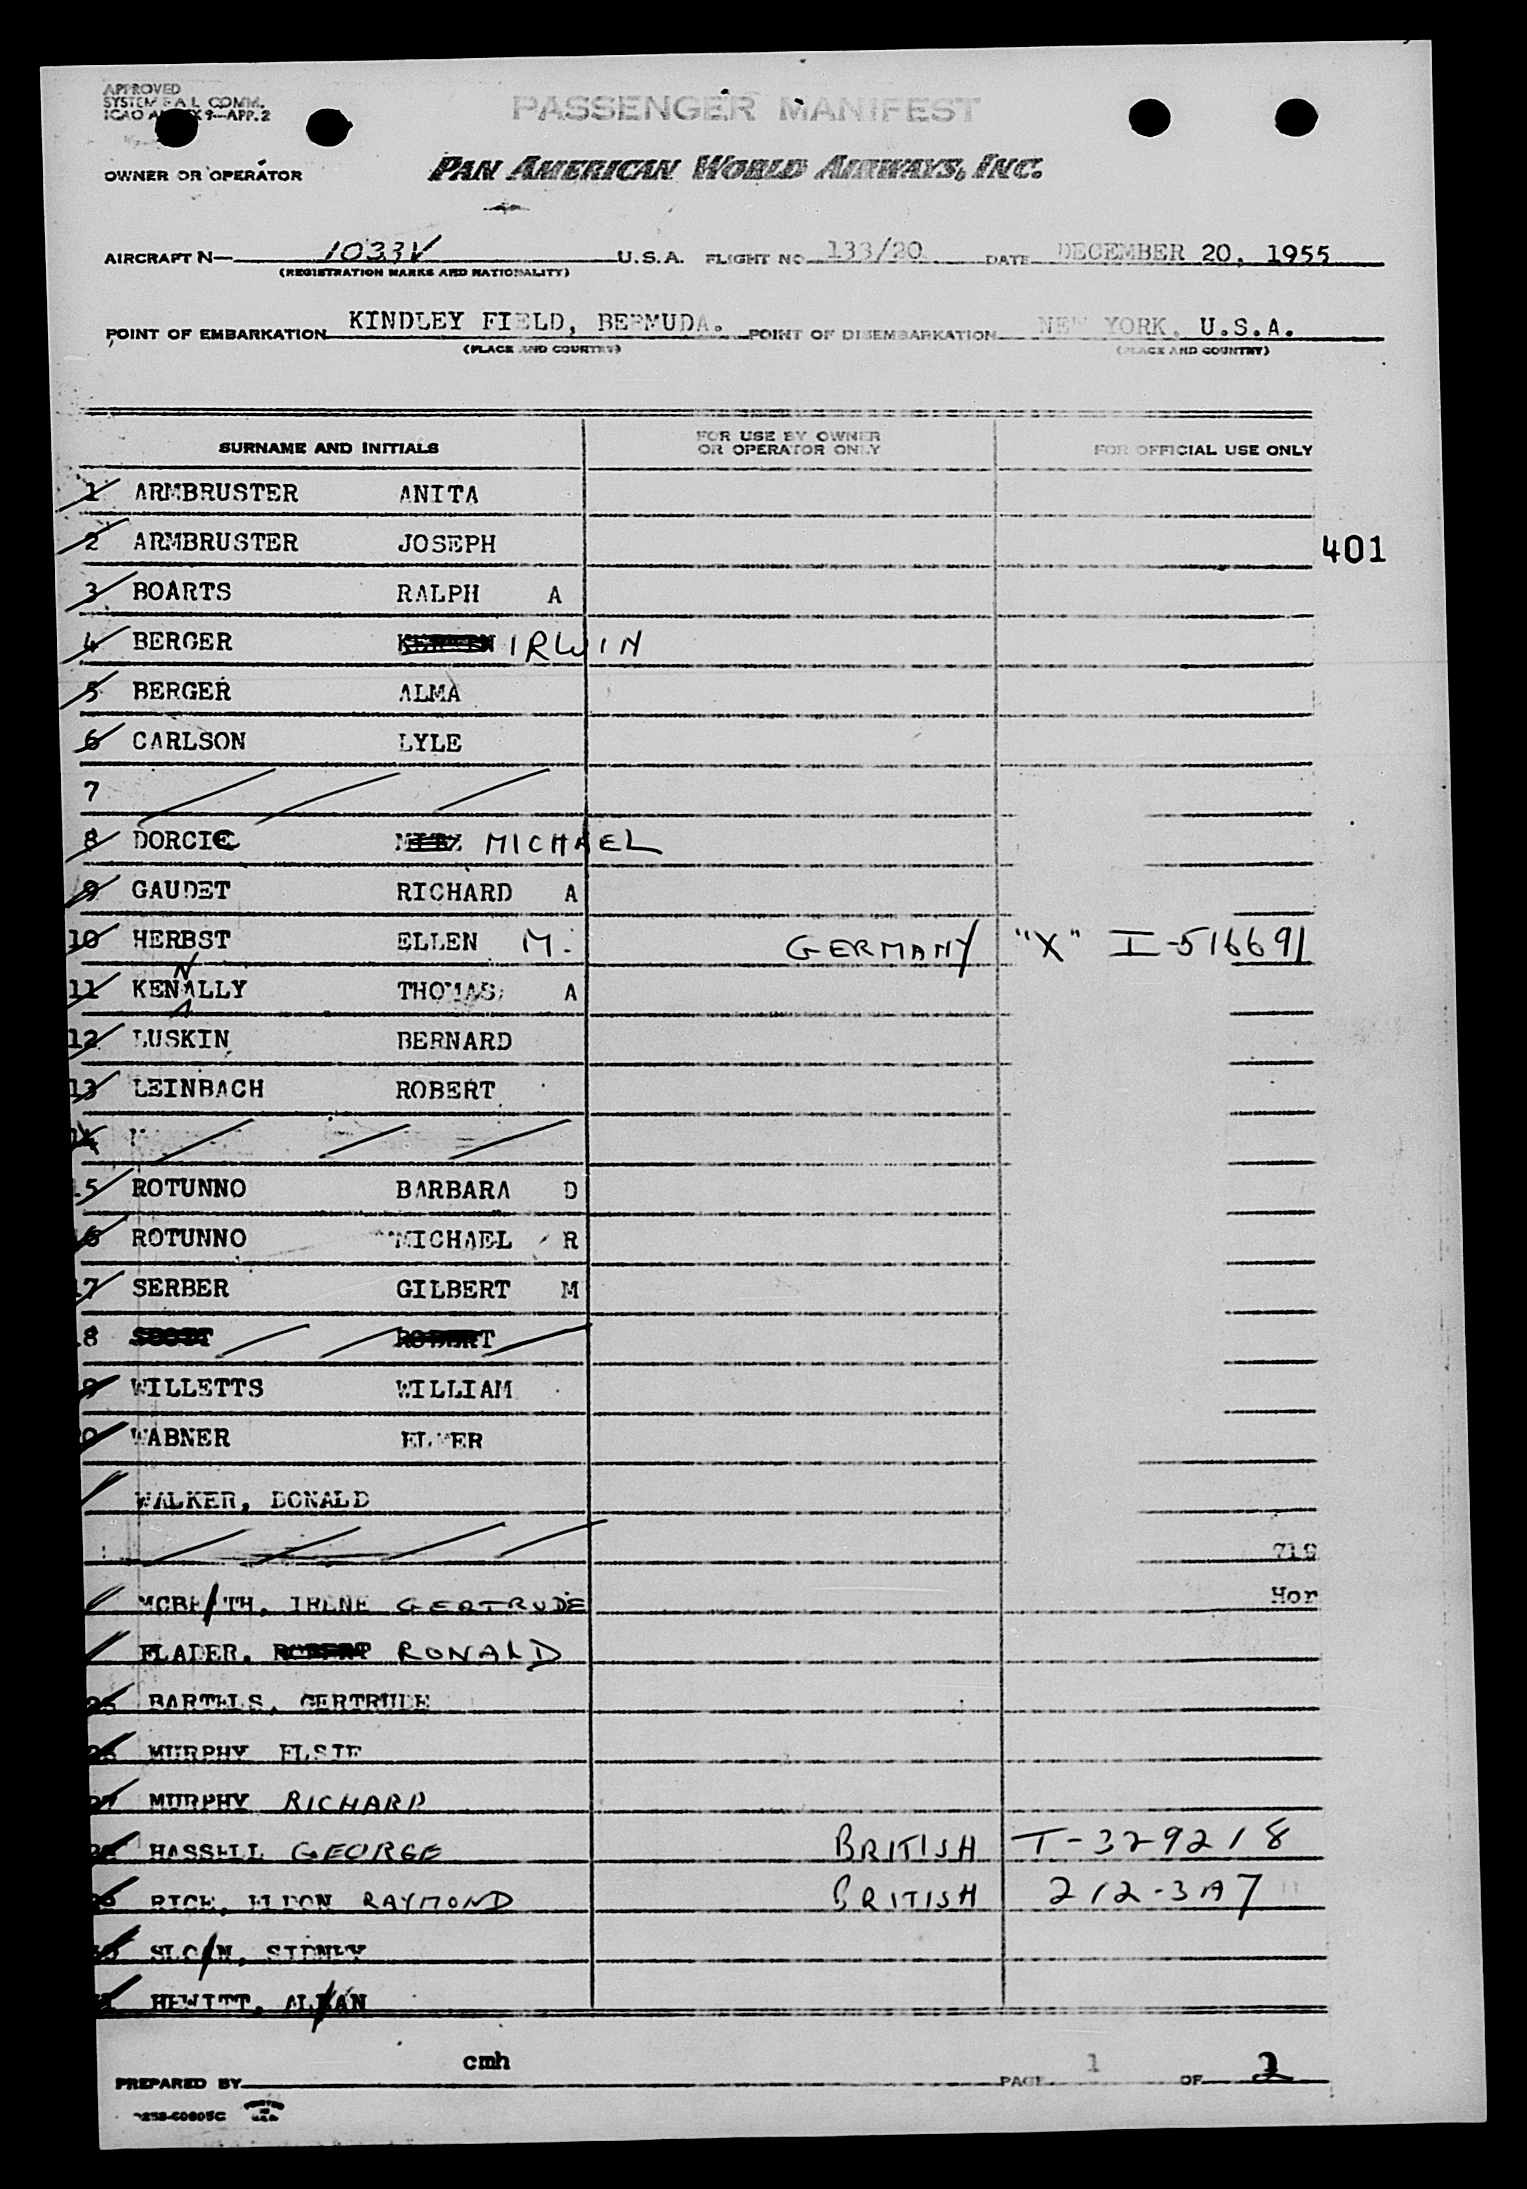 APPROVED
SYSTEM FAL COMM.
ICAO 9—APP.2
PASSENGER MANIFEST
OWNER OR OPERATOR PAN AMERICAN WORLD AIRWAYS, INC.
AIRCRAFT N— 1033V U.S.A. FLIGHT NO 133/20 DATE DECEMBER 20, 1955
(REGISTRATION MARKS AND NATIONALITY)
POINT OF EMBARKATION KINDLEY FIELD, BERMUDA. POINT OF DISEMBARKATION NEW YORK, U.S.A.
(PLACE AND COUNTRY) (PLACE AND COUNTRY)
SURNAME AND INITIALS FOR USE BY OWNER OR OPERATOR ONLY FOR OFFICIAL USE ONLY
1 ARMBRUSTER ANITA
2 ARMBRUSTER JOSEPH
401
3 BOARTS RALPH A
4 BERGER IRWIN
5 BERGER ALMA
6 CARLSON LYLE
7
8 DORCIC MICHAEL
9 GAUDET RICHARD A
10 HERBST ELLEN M. GERMANY "X" I-516691
11 KENNALLY THOMAS A
12 LUSKIN BERNARD
13 LEINBACH ROBERT
14
15 ROTUNNO BARBARA D
16 ROTUNNO MICHAEL R
17 SERBER GILBERT M
18 ROBERT
19 WILLETTS WILLIAM
20 WABNER ELMER
WALKER, DONALD
719
MCBEITH, IRENE GERTRUDE Hor
FLADER, ROBERT RONALD
25 BARTELS, GERTRUDE
26 MURPHY ELSIE
27 MURPHY RICHARD
28 HASSELL GEORGE BRITISH T-329218
29 RICE, ELDON RAYMOND BRITISH
30 SIDNEY
31 HEWITT, ALLAN
cmh
PREPARED BY PAGE 1 OF 2
PRINTED IN U.S.A.